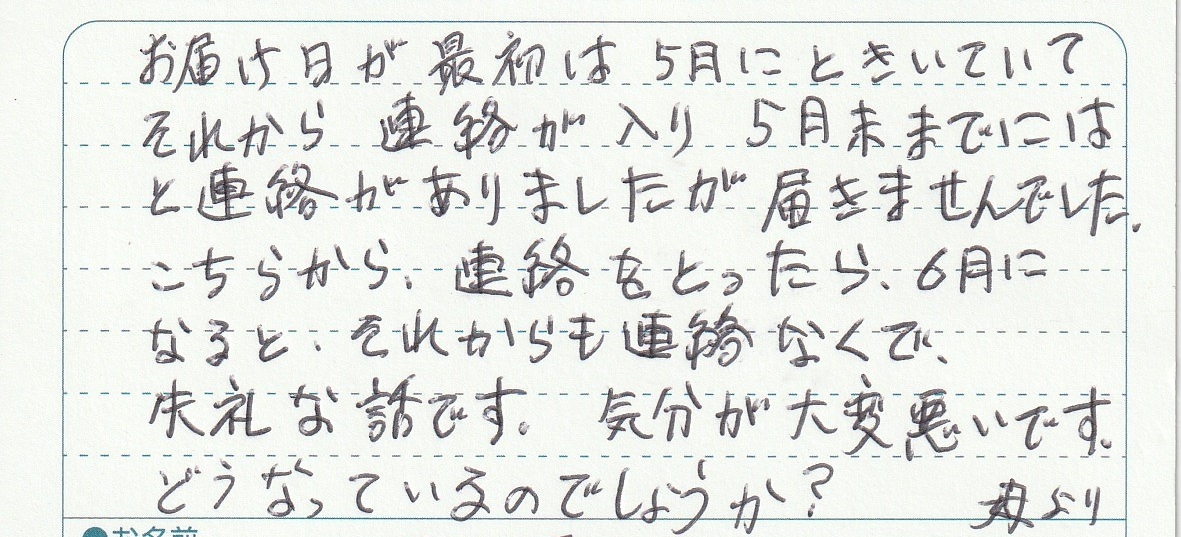 お届け日が最初は5月にときいていて
それから連絡が入り5月末までには
と連絡がありましたが届きませんでした.
こちらから、連絡をとったら、6月に
なると、それからも連絡なくで、
失礼な話です。気分が大変悪いです。
どうなっているのでしょうか?
母より
●お名前